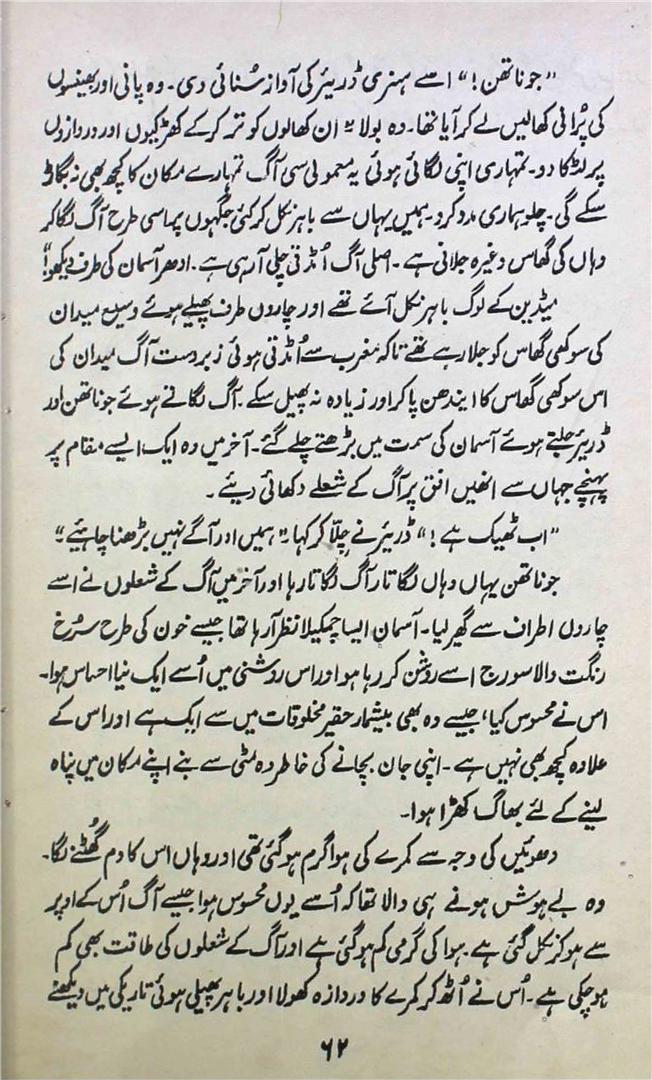 ”جوناتھن!“ اسے ہنری ڈریئر کی آواز سُنائی دی۔ وہ پانی اور بھینسوں
کی پُرانی کھالیں لے کر آیا تھا۔ وہ بولا ”ان کھالوں کو تر کر کے کھڑکیوں اور دروازوں
پر لٹکا دو۔ تمہاری اپنی لگائی ہوئی یہ معمولی سی آگ تمہارے مکان کا کچھ بھی نہ بگاڑ
سکے گی۔ چلو ہماری مدد کرو۔ ہمیں یہاں سے باہر نکل کر کئی جگہوں پر اسی طرح آگ لگا کر
وہاں کی گھاس وغیرہ جلانی ہے۔ اصلی آگ اُمڈتی چلی آ رہی ہے۔ ادھر آسمان کی طرف دیکھو!“
میڈین کے لوگ باہر نکل آئے تھے اور چاروں طرف پھیلے ہوئے وسیع میدان
کی سوکھی گھاس کو جلا رہے تھے تاکہ مغرب سے اُمڈتی ہوئی زبردست آگ میدان کی
اس سوکھی گھاس کا ایندھن پا کر اور زیادہ نہ پھیل سکے۔ آگ لگاتے ہوئے جوناتھن اور
ڈریئر جلتے ہوئے آسمان کی سمت میں بڑھتے چلے گئے۔ آخر میں وہ ایک ایسے مقام پر
پہنچے جہاں سے انھیں افق پر آگ کے شعلے دکھائی دیئے۔
”اب ٹھیک ہے!“ ڈریئر نے چلّا کر کہا۔ ”ہمیں اور آگے نہیں بڑھنا چاہیئے۔“
جوناتھن یہاں وہاں لگاتار آگ لگاتا رہا اور آخر میں آگ کے شعلوں نے اسے
چاروں اطراف سے گھیر لیا۔ آسمان ایسا چمکیلا نظر آ رہا تھا جیسے خون کی طرح سرُخ
رنگت والا سورج اسے روشن کر رہا ہو اور اس روشنی میں اُسے ایک نیا احساس ہوا۔
اس نے محسوس کیا، جیسے وہ بھی بیشمار حقیر مخلوقات میں سے ایک ہے اور اس کے
علاوہ کچھ بھی نہیں ہے۔ اپنی جان بچانے کی خاطر وہ مٹی سے بنے اپنے مکان میں پناہ
لینے کے لئے بھاگ کھڑا ہوا۔
دھوئیں کی وجہ سے کمرے کی ہوا گرم ہو گئی تھی اور وہاں اس کا دم گھُٹنے لگا۔
وہ بے ہوش ہونے ہی والا تھا کہ اُسے یوں محسوس ہوا جیسے آگ اُس کے اوپر
سے ہو کر نکل گئی ہے۔ ہوا کی گرمی کم ہو گئی ہے اور آگ کے شعلوں کی طاقت بھی کم
ہو چکی ہے۔ اُس نے اُٹھ کر کمرے کا دروازہ کھولا اور باہر پھیلی ہوئی تاریکی میں دیکھنے
۶۲